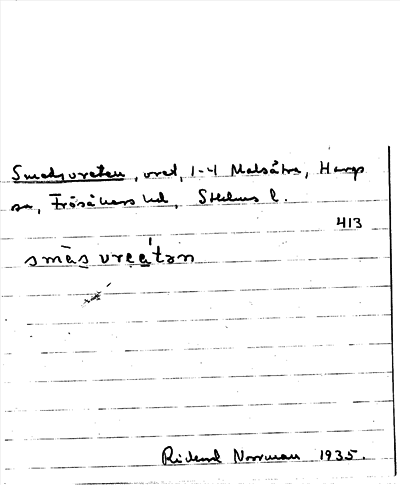 Smedjvreten, vret, 1-4 Malsätra, Hargs
sn, Frösåkers hd, Sthlms l.
413
smäs vreatən
Rickard Norrman 1935.